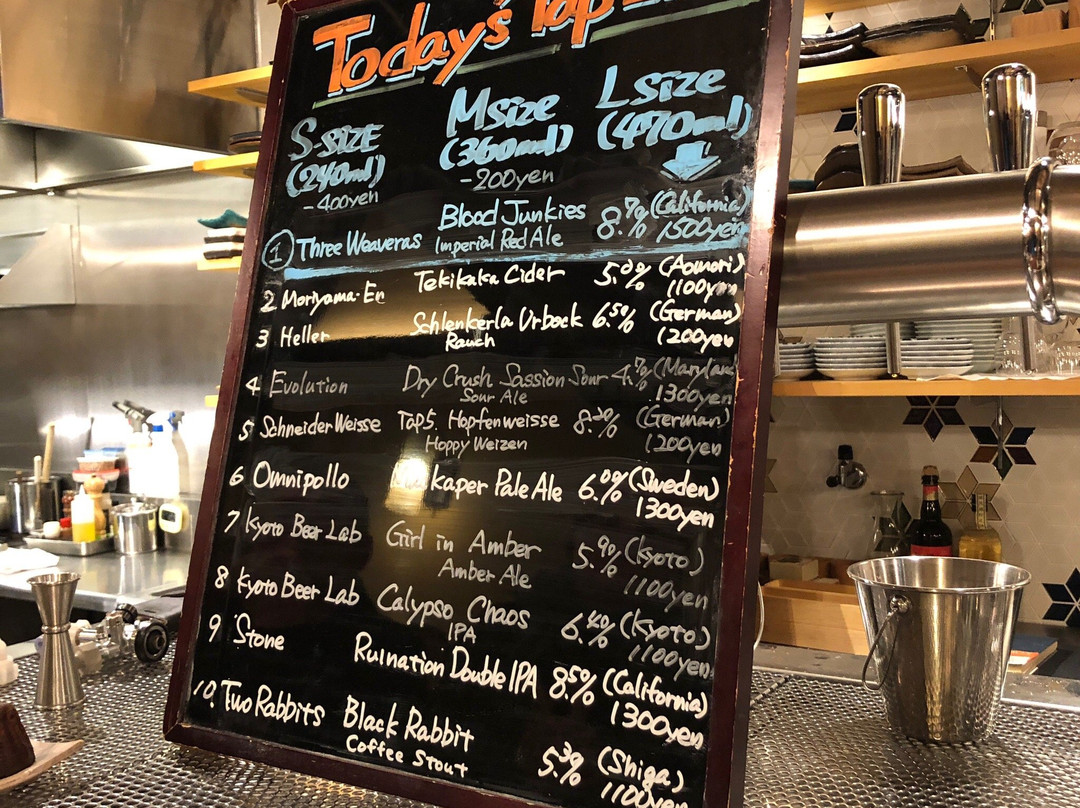 Today's Tap
S-SIZE
(240ml)
-400yen
M size
(360ml)
-200yen
L size
(470ml)
① Three Weaveras Blood Junkies 8.7% (California)
Imperial Red Ale 1500yen
2 Moriyama-En Tekikaka Cider 5.0% (Aomori)
1100yen
3 Heller Schlenkerla Urbock 6.5% (German)
Rauch 1200yen
4 Evolution Dry Crush Sassion Sour 4.7% (Maryland
Sour Ale 1300yen
5 Schneider Weisse TAP5. Hopfenweisse 8.2% (German)
Hoppy Weizen 1200yen
6 Omnipollo kaper Pale Ale 6.0% (Sweden)
1300yen
7 Kyoto Beer Lab Girl in Amber 5.9% (Kyoto)
Amber Ale 1100yen
8 Kyoto Beer Lab Calypso Chaos 6.4% (Kyoto)
IPA 1100yen
9 Stone Ruination Double IPA 8.5% (California)
1300yen
10. Two Rabbits Black Rabbit 5.3% (Shiga)
Coffee Stout 1100yen